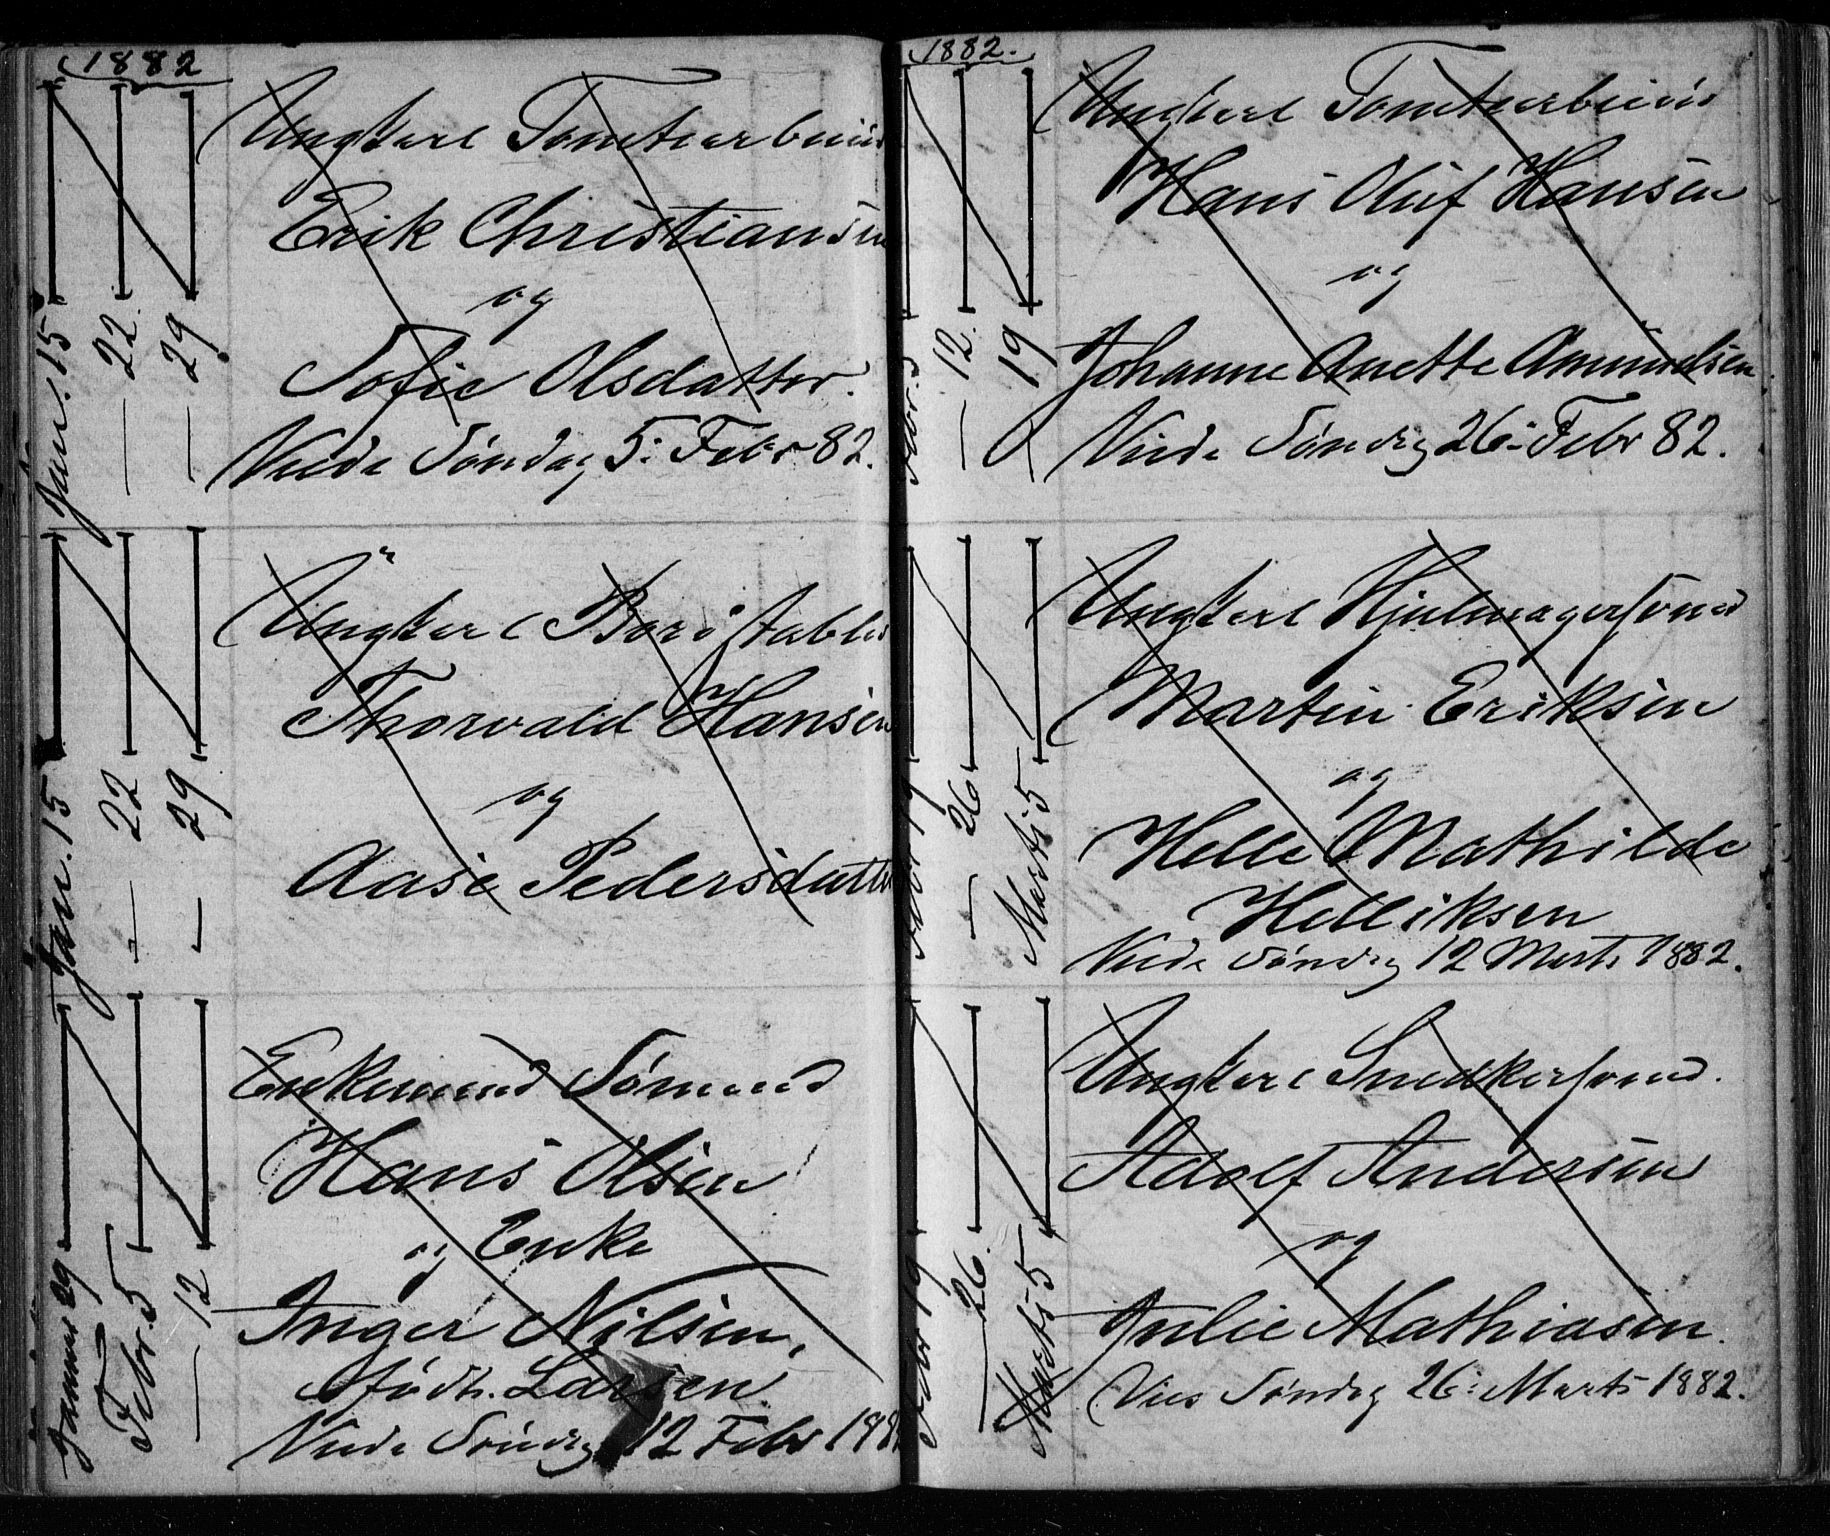 1882
Ungkarl Tomtearbeid
Erik Christiansen
og
Sofie Olsdatter.
Viede Søndag 5: Febr 82.
Jan. 15
— 22.
— 29
Ungkarl
Thorvald Hansen
og
Aase Pedersdatt
Jan. 15
— 22
— 29
Enkemand Sømand
Hans Olsen
og Enke
Inger Nilsen,
født. Larsen.
Viede Søndag 12 Febr 188
Januar 29
Febr 5
— 12
1882.
Ungkarl Tomtearbeid
Hans Oluf Hansen
og
Johanne Anette Amundsen.
Viede Søndag 26: Febr 82.
Febr. 5
— 12.
— 19
Ungkarl Hjulmagersvend
Martin Eriksen
og
Helle Mathilde
Helliksen
Viede Søndag 12 Marts 1882.
Febr 19
— 26
Marts 5
Ungkarl Snedkersvend.
Adolf Andersen
og
Julie Mathiasen.
Vies Søndag 26: Marts 1882.
Febr 19
— 26.
Marts 5